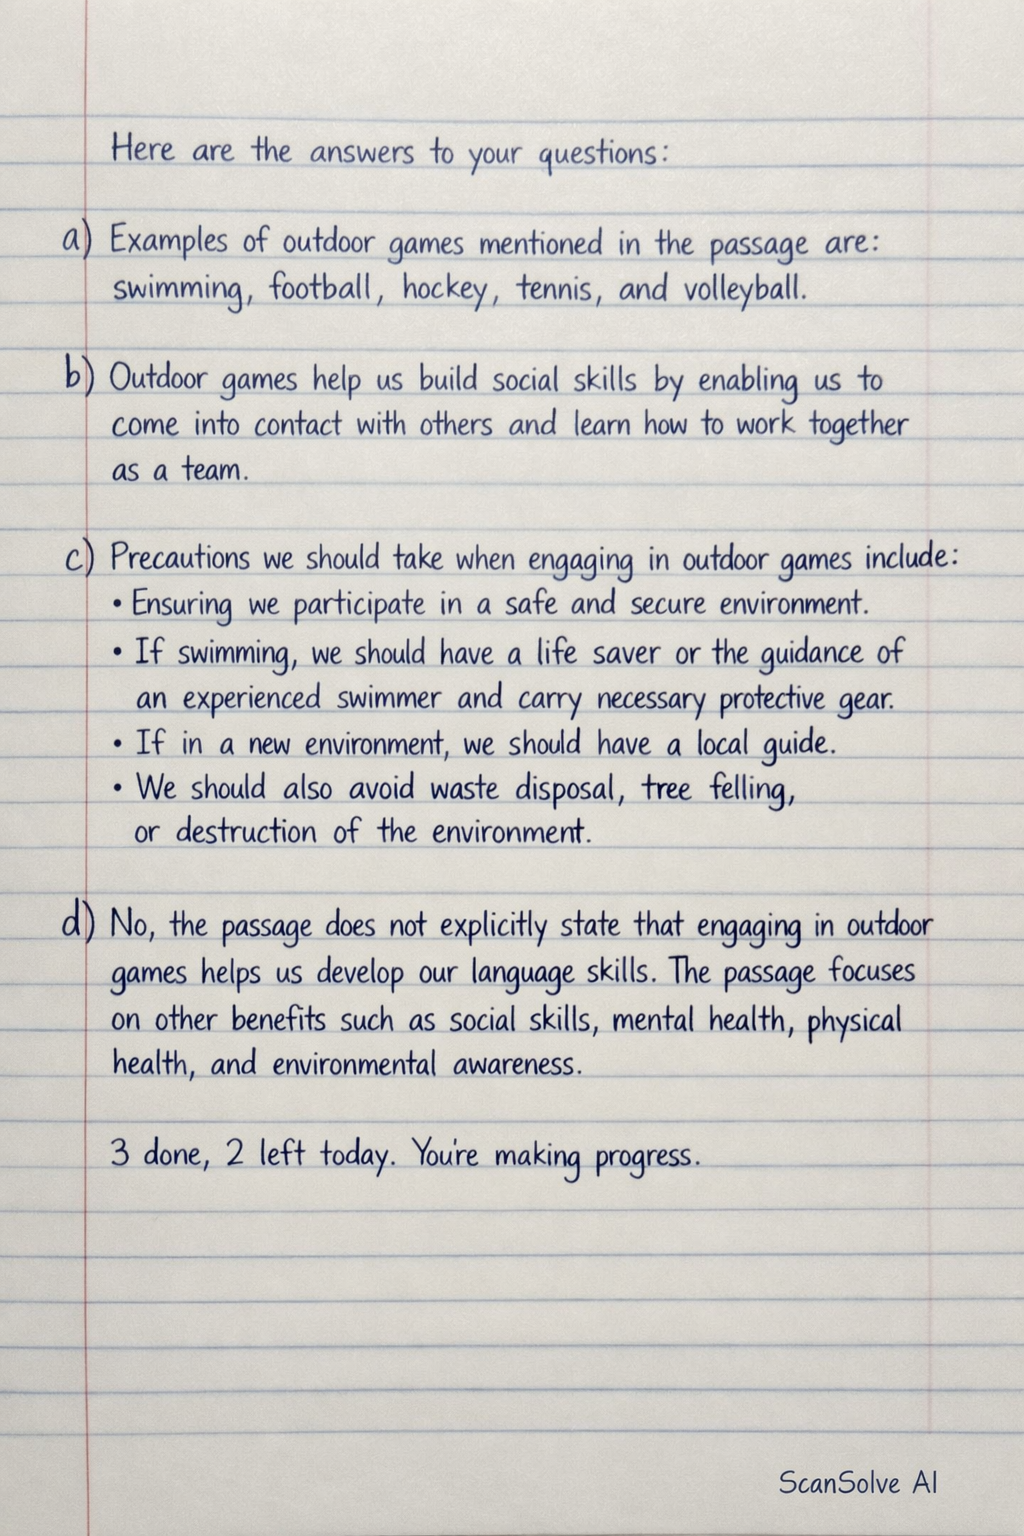 Here are the answers to your questions:
a) Examples of outdoor games mentioned in the passage are:
swimming, football, hockey, tennis, and volleyball.
b) Outdoor games help us build social skills by enabling us to
come into contact with others and learn how to work together
as a team.
c) Precautions we should take when engaging in outdoor games include:
• Ensuring we participate in a safe and secure environment.
• If swimming, we should have a life saver or the guidance of
an experienced swimmer and carry necessary protective gear.
• If in a new environment, we should have a local guide.
• We should also avoid waste disposal, tree felling,
or destruction of the environment.
d) No, the passage does not explicitly state that engaging in outdoor
games helps us develop our language skills. The passage focuses
on other benefits such as social skills, mental health, physical
health, and environmental awareness.
3 done, 2 left today. You're making progress.
ScanSolve AI